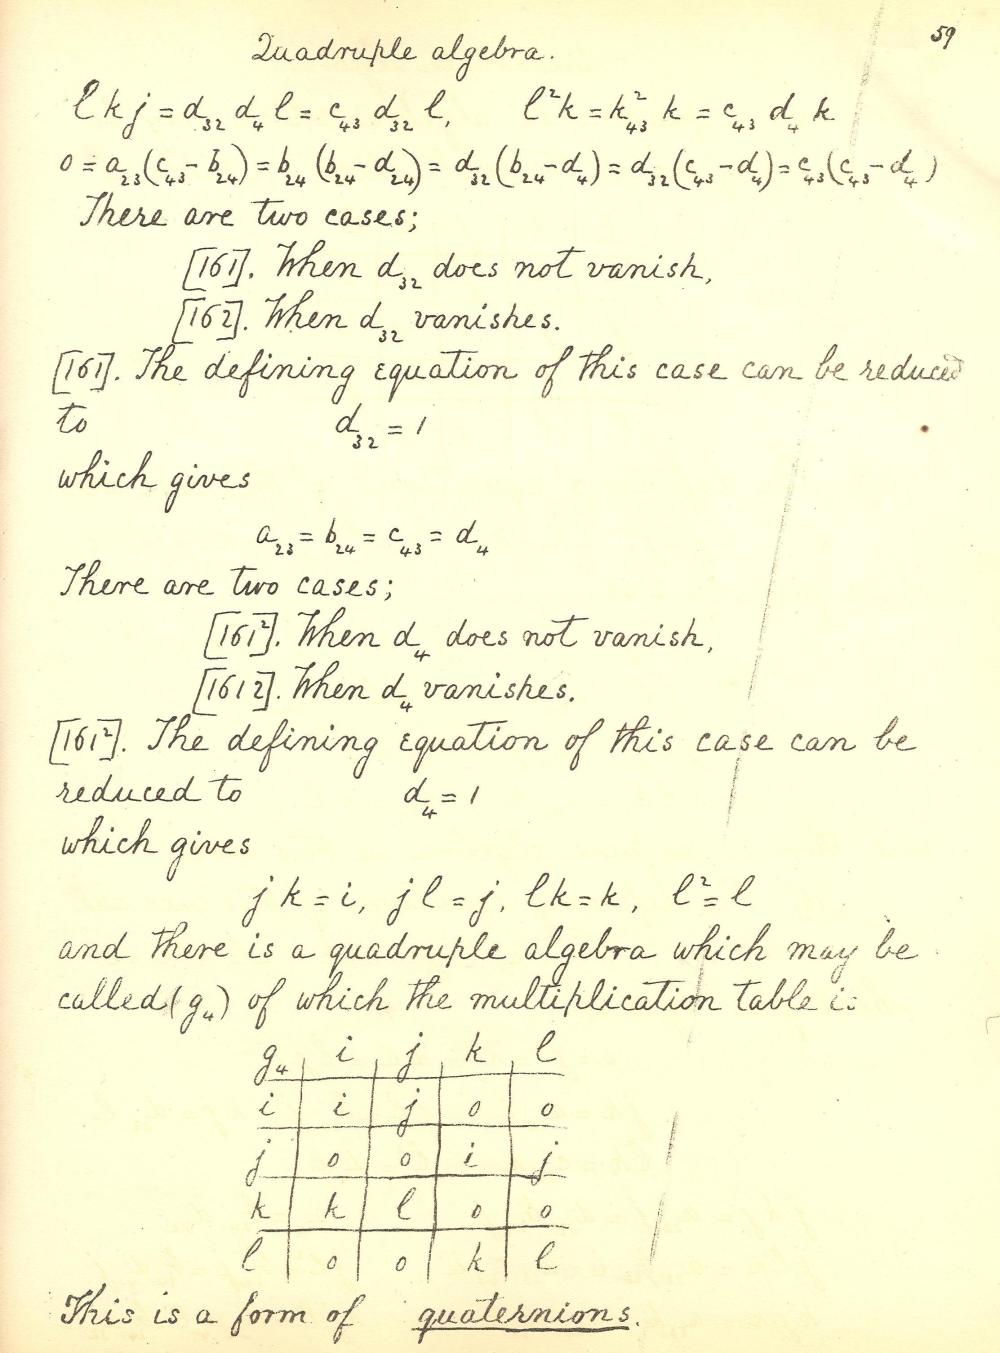 59
Quadruple algebra.
lkj = d₃₂ d₄ l = c₄₃ d₃₂ l, l²k = k²₄₃ k = c₄₃ d₄ k
0 = a₂₃(c₄₃ - b₂₄) = b₂₄(b₂₄ - d₂₄) = d₃₂(b₂₄ - d₄) = d₃₂(c₄₃ - d₄) = c₄₃(c₄₃ - d₄)
There are two cases;
[161]. When d₃₂ does not vanish,
[162]. When d₃₂ vanishes.
[161]. The defining equation of this case can be reduced
to d₃₂ = 1
which gives
a₂₃ = b₂₄ = c₄₃ = d₄
There are two cases;
[161²]. When d₄ does not vanish,
[1612]. When d₄ vanishes.
[161²]. The defining equation of this case can be
reduced to d₄ = 1
which gives
jk = i, jl = j, lk = k, l² = l
and there is a quadruple algebra which may be
called (g₄) of which the multiplication table is
g₄ i j k l
i i j 0 0
j 0 0 i j
k k l 0 0
l 0 0 k l
This is a form of quaternions.